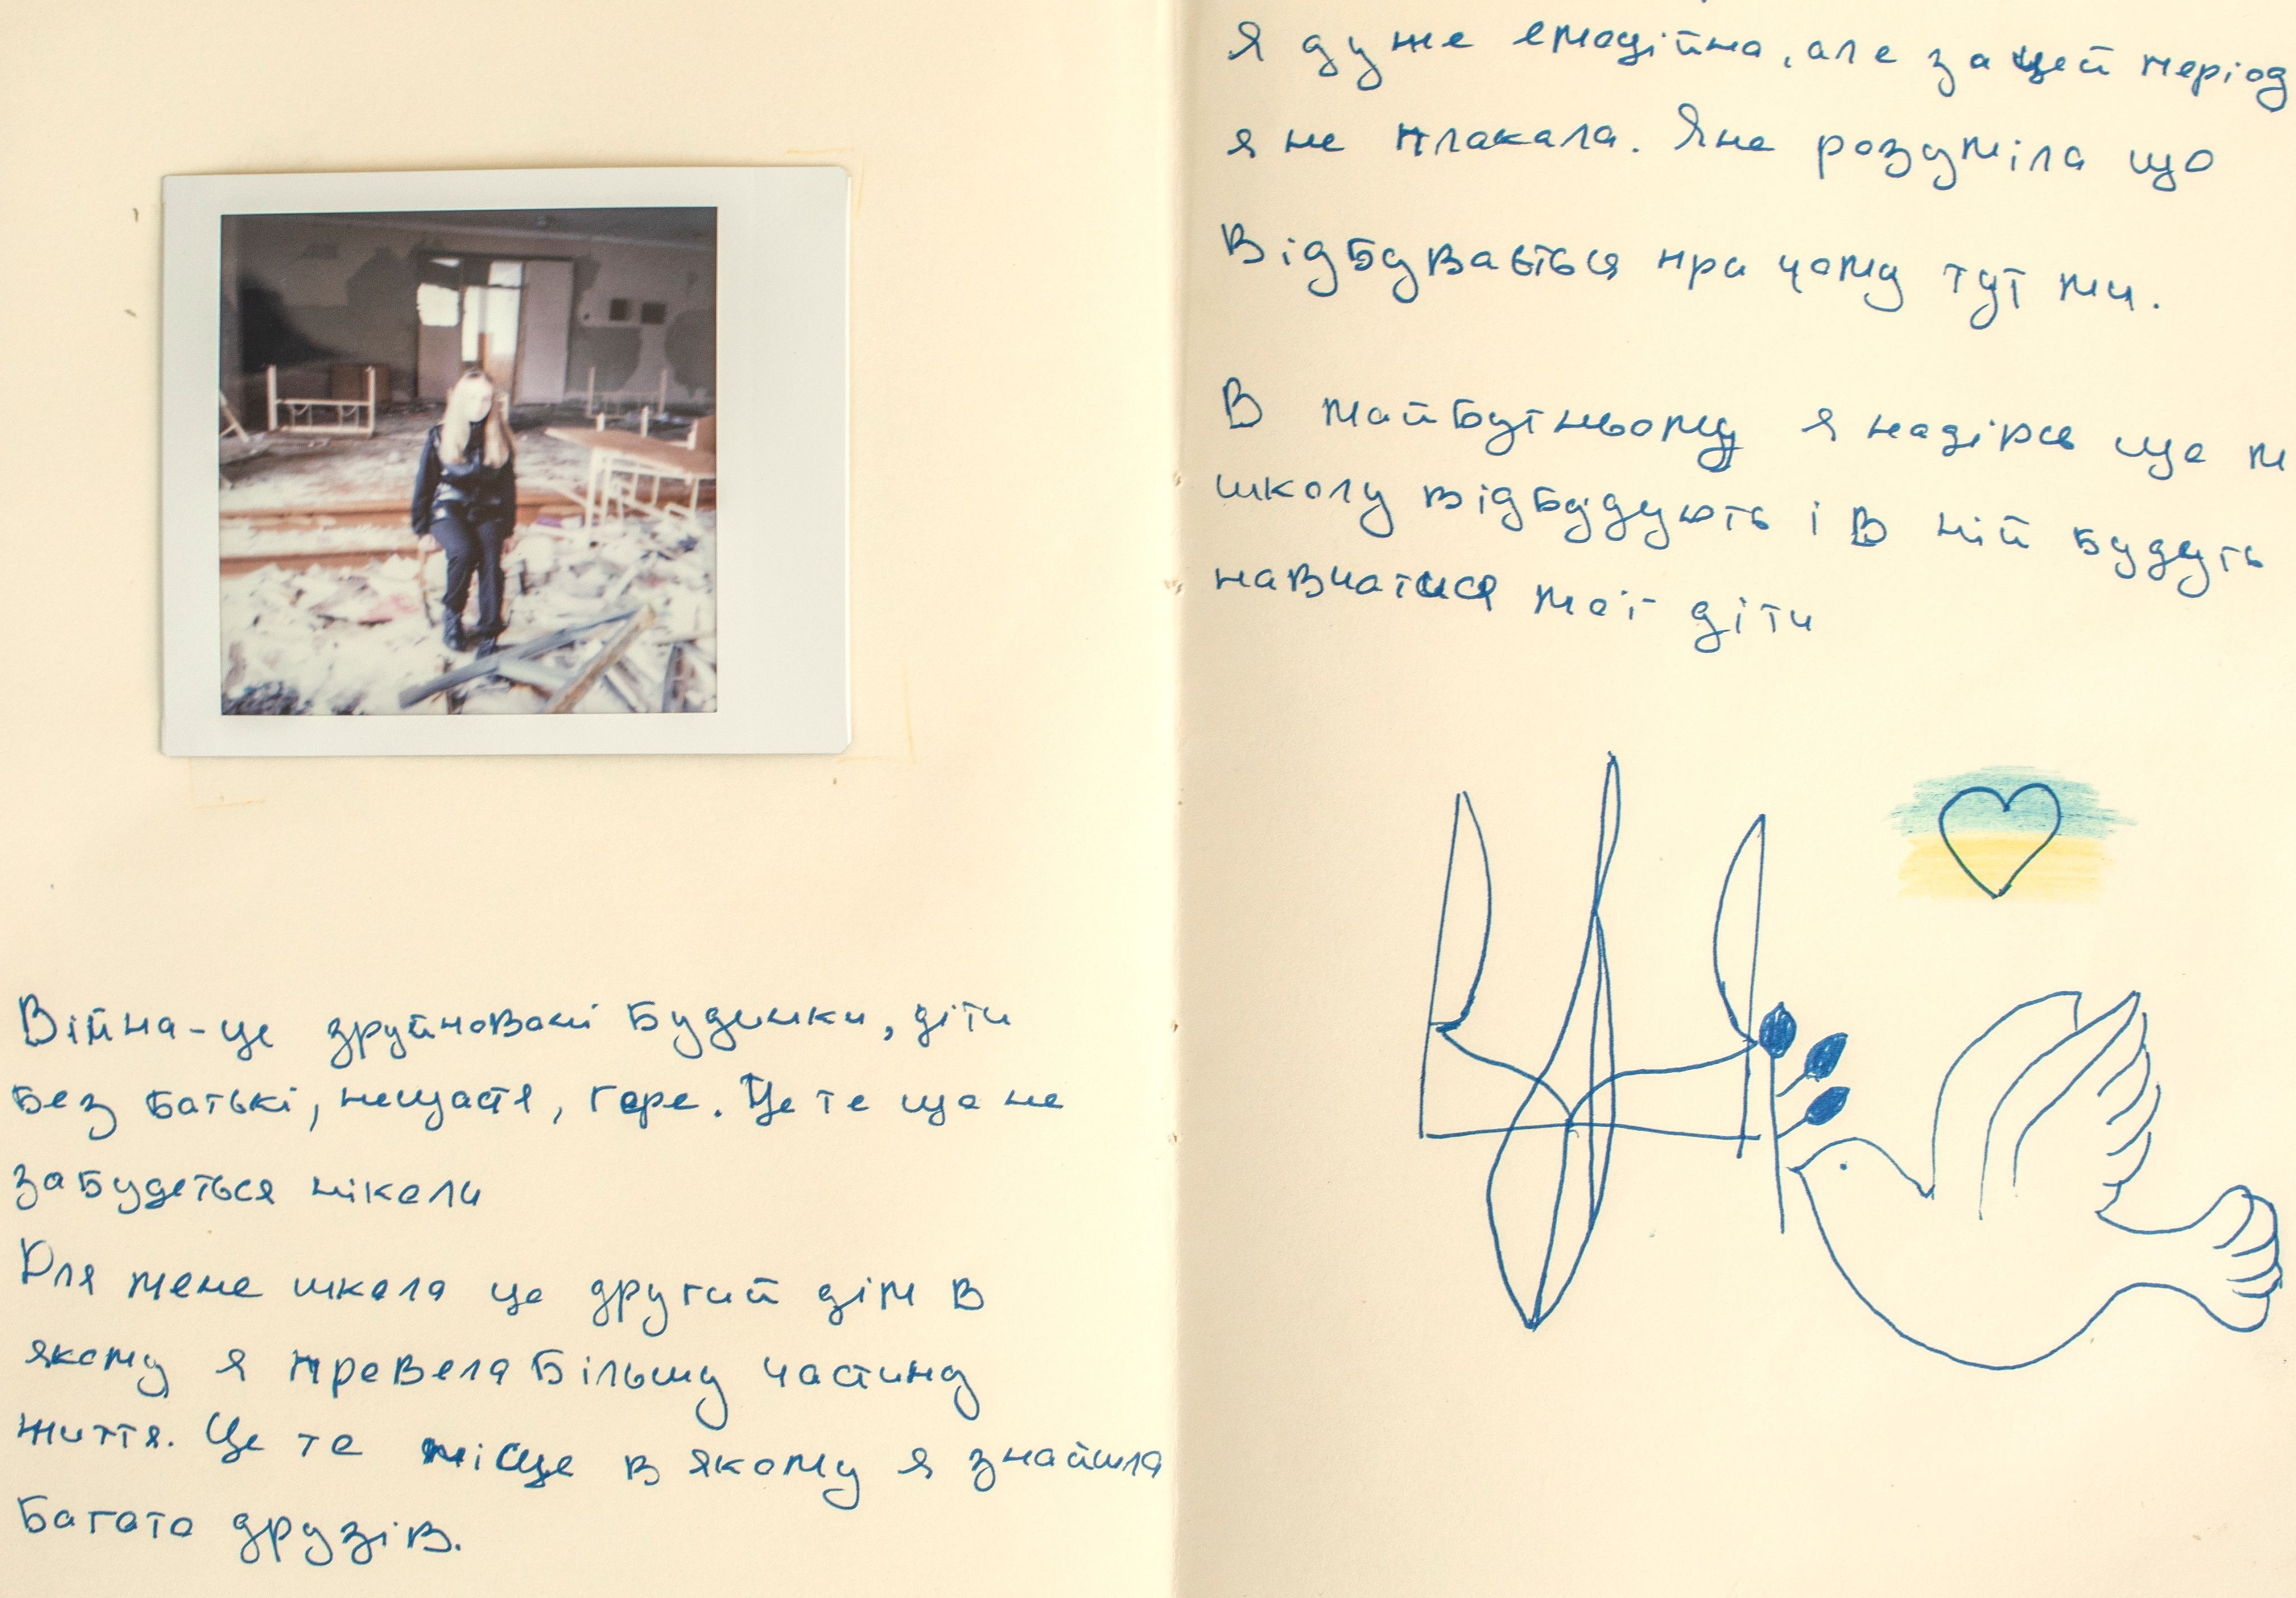 Війна-це зруйновані будинки, діти
без батькі, нещастя, горе. Це те що не
забудеться ніколи
Для мене школа це другий дім в
якому я провела більшу частину
життя. Це те місце в якому я знайшла
багато друзів.
Я дуже емоційна, але за цей період
я не плакала. Я не розуміла що
відбувається при чому тут ми.
В майбутньому я надіюсь що м
школу відбудують і в ній будуть
навчатися мої діти